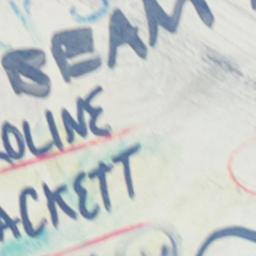 BEAM
OLINE
ACKETT